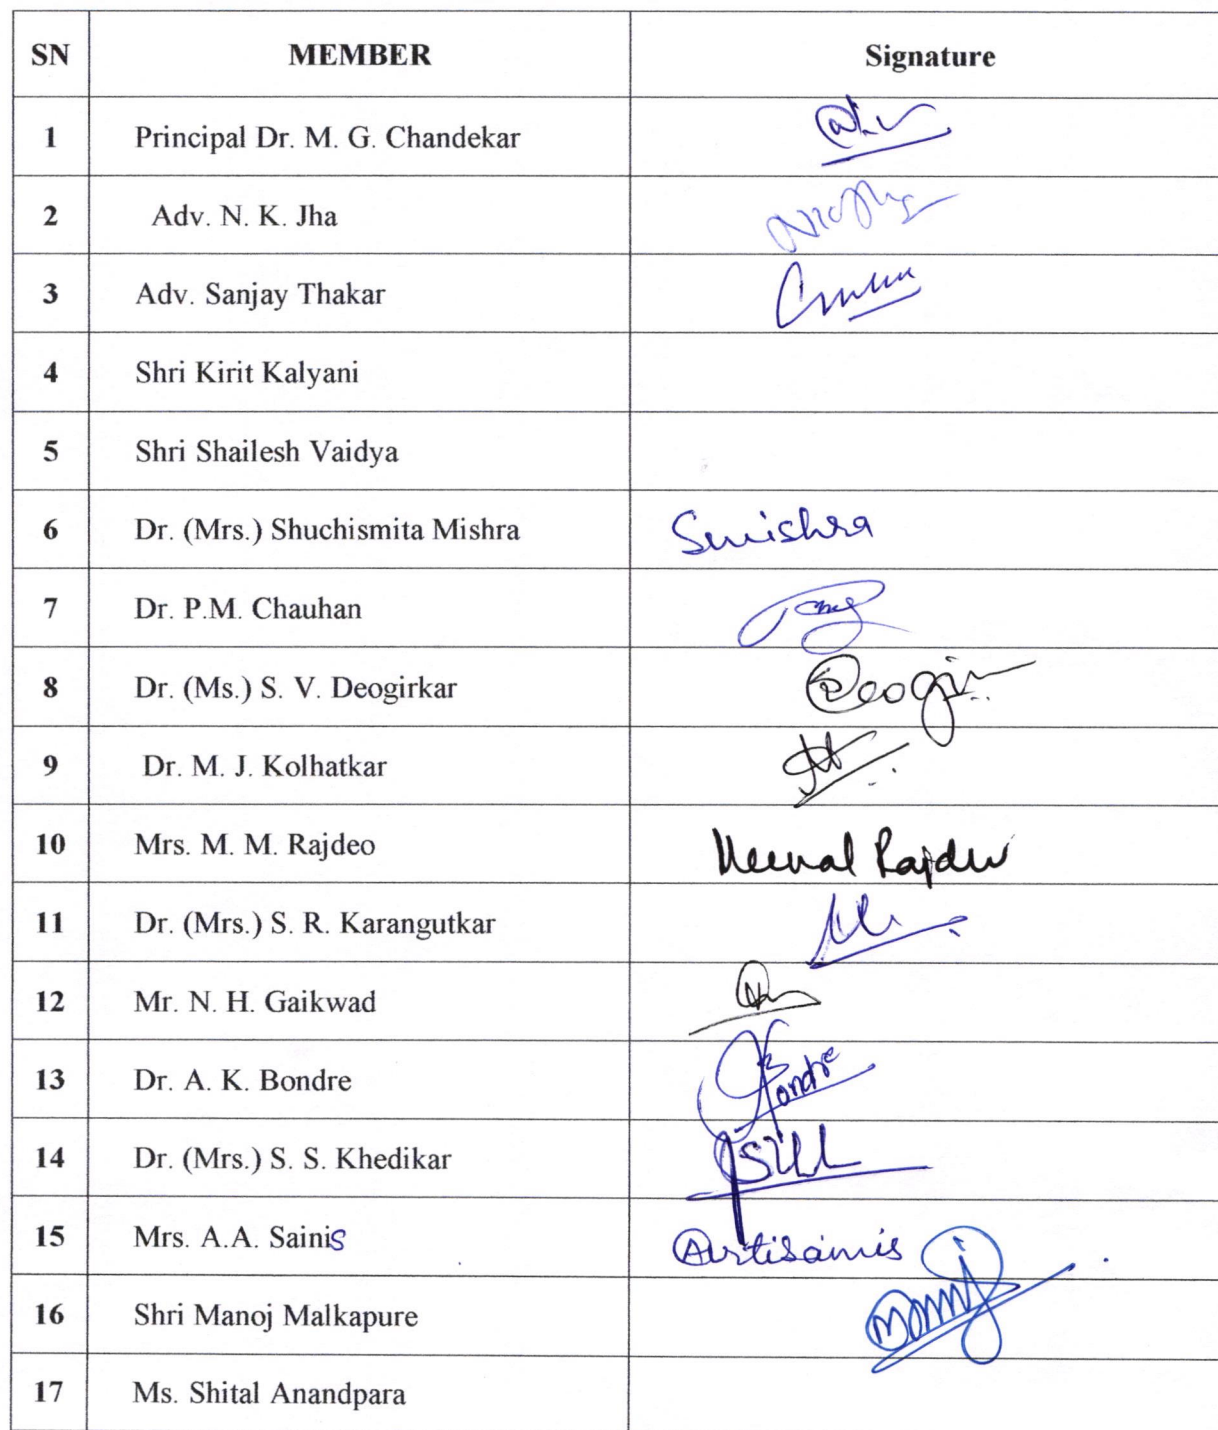 SN MEMBER Signature
1 Principal Dr. M. G. Chandekar
2 Adv. N. K. Jha
3 Adv. Sanjay Thakar
4 Shri Kirit Kalyani
5 Shri Shailesh Vaidya
6 Dr. (Mrs.) Shuchismita Mishra Smishra
7 Dr. P.M. Chauhan
8 Dr. (Ms.) S. V. Deogirkar
9 Dr. M. J. Kolhatkar
10 Mrs. M. M. Rajdeo Meenal Rajdeo
11 Dr. (Mrs.) S. R. Karangutkar
12 Mr. N. H. Gaikwad
13 Dr. A. K. Bondre Bondre
14 Dr. (Mrs.) S. S. Khedikar
15 Mrs. A.A. Sainis Artisainis
16 Shri Manoj Malkapure
17 Ms. Shital Anandpara